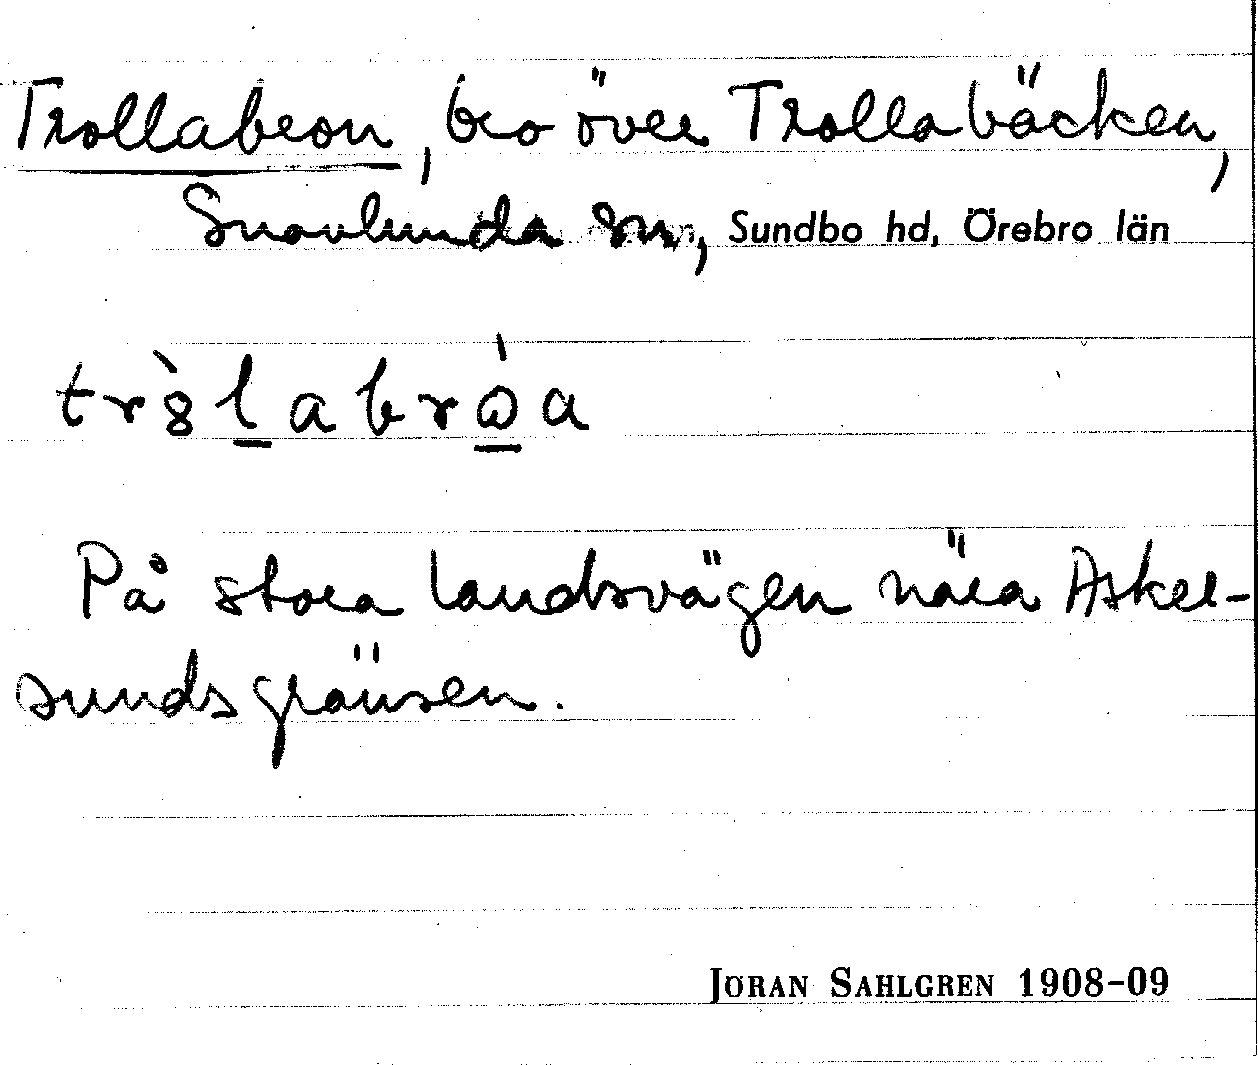 Trollabron, bro över Trollabäcken,
Snavlunda sn, Sundbo hd, Örebro län
tròlabróa
På stora landsvägen nära Asker-
sundsgränsen.
JÖRAN SAHLGREN 1908-09